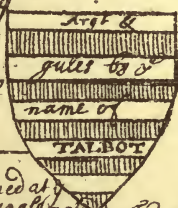 Argt &
gules by ye
name of
TALBOT
ned at y